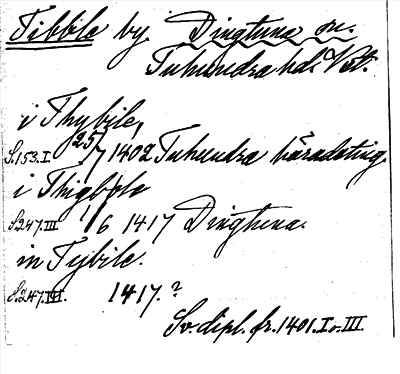 Tibble by. Dingtuna sn.
Tuhundra hd. Vstm.
i Thybile,
S.153.I. 25/7 1402 Tuhundra häradsting.
i Thigbyle
S.247.III 1/6 1417 Dingtuna.
in Tybile.
S.247.III. 1417.?
Sv. dipl. fr. 1401. I o. III.